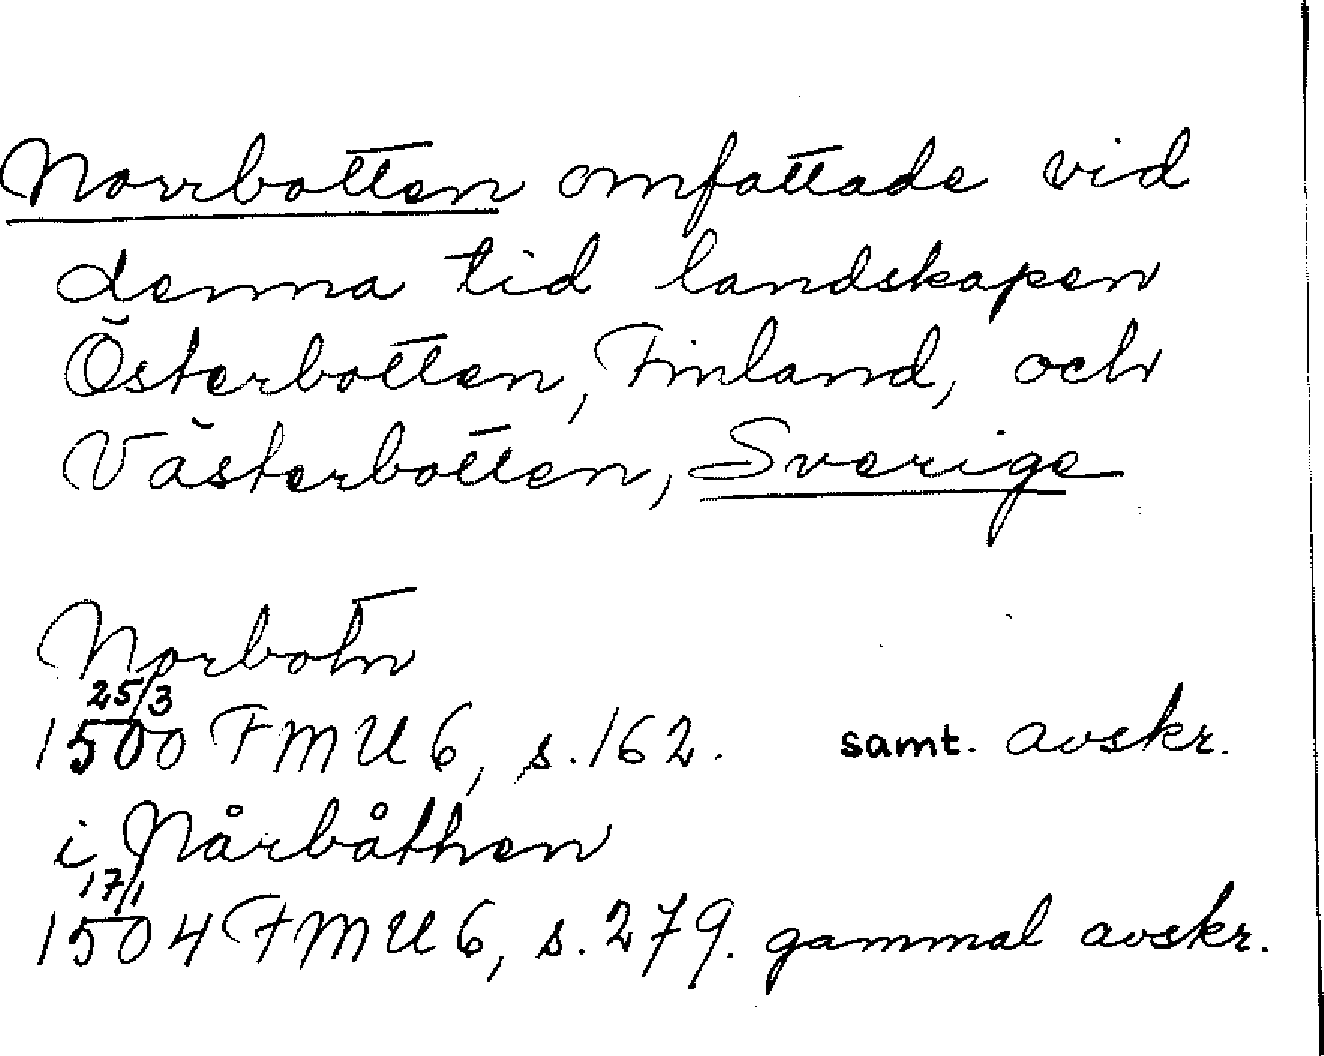 Norrbotten omfattade vid
denna tid landskapen
Österbotten, Finland, och
Västerbotten, Sverige
Norbotn
25/3
1500 FMU 6, s. 162. samt. avskr.
i Nårbåthen
17/1
1504 FMU 6, s. 279. gammal avskr.